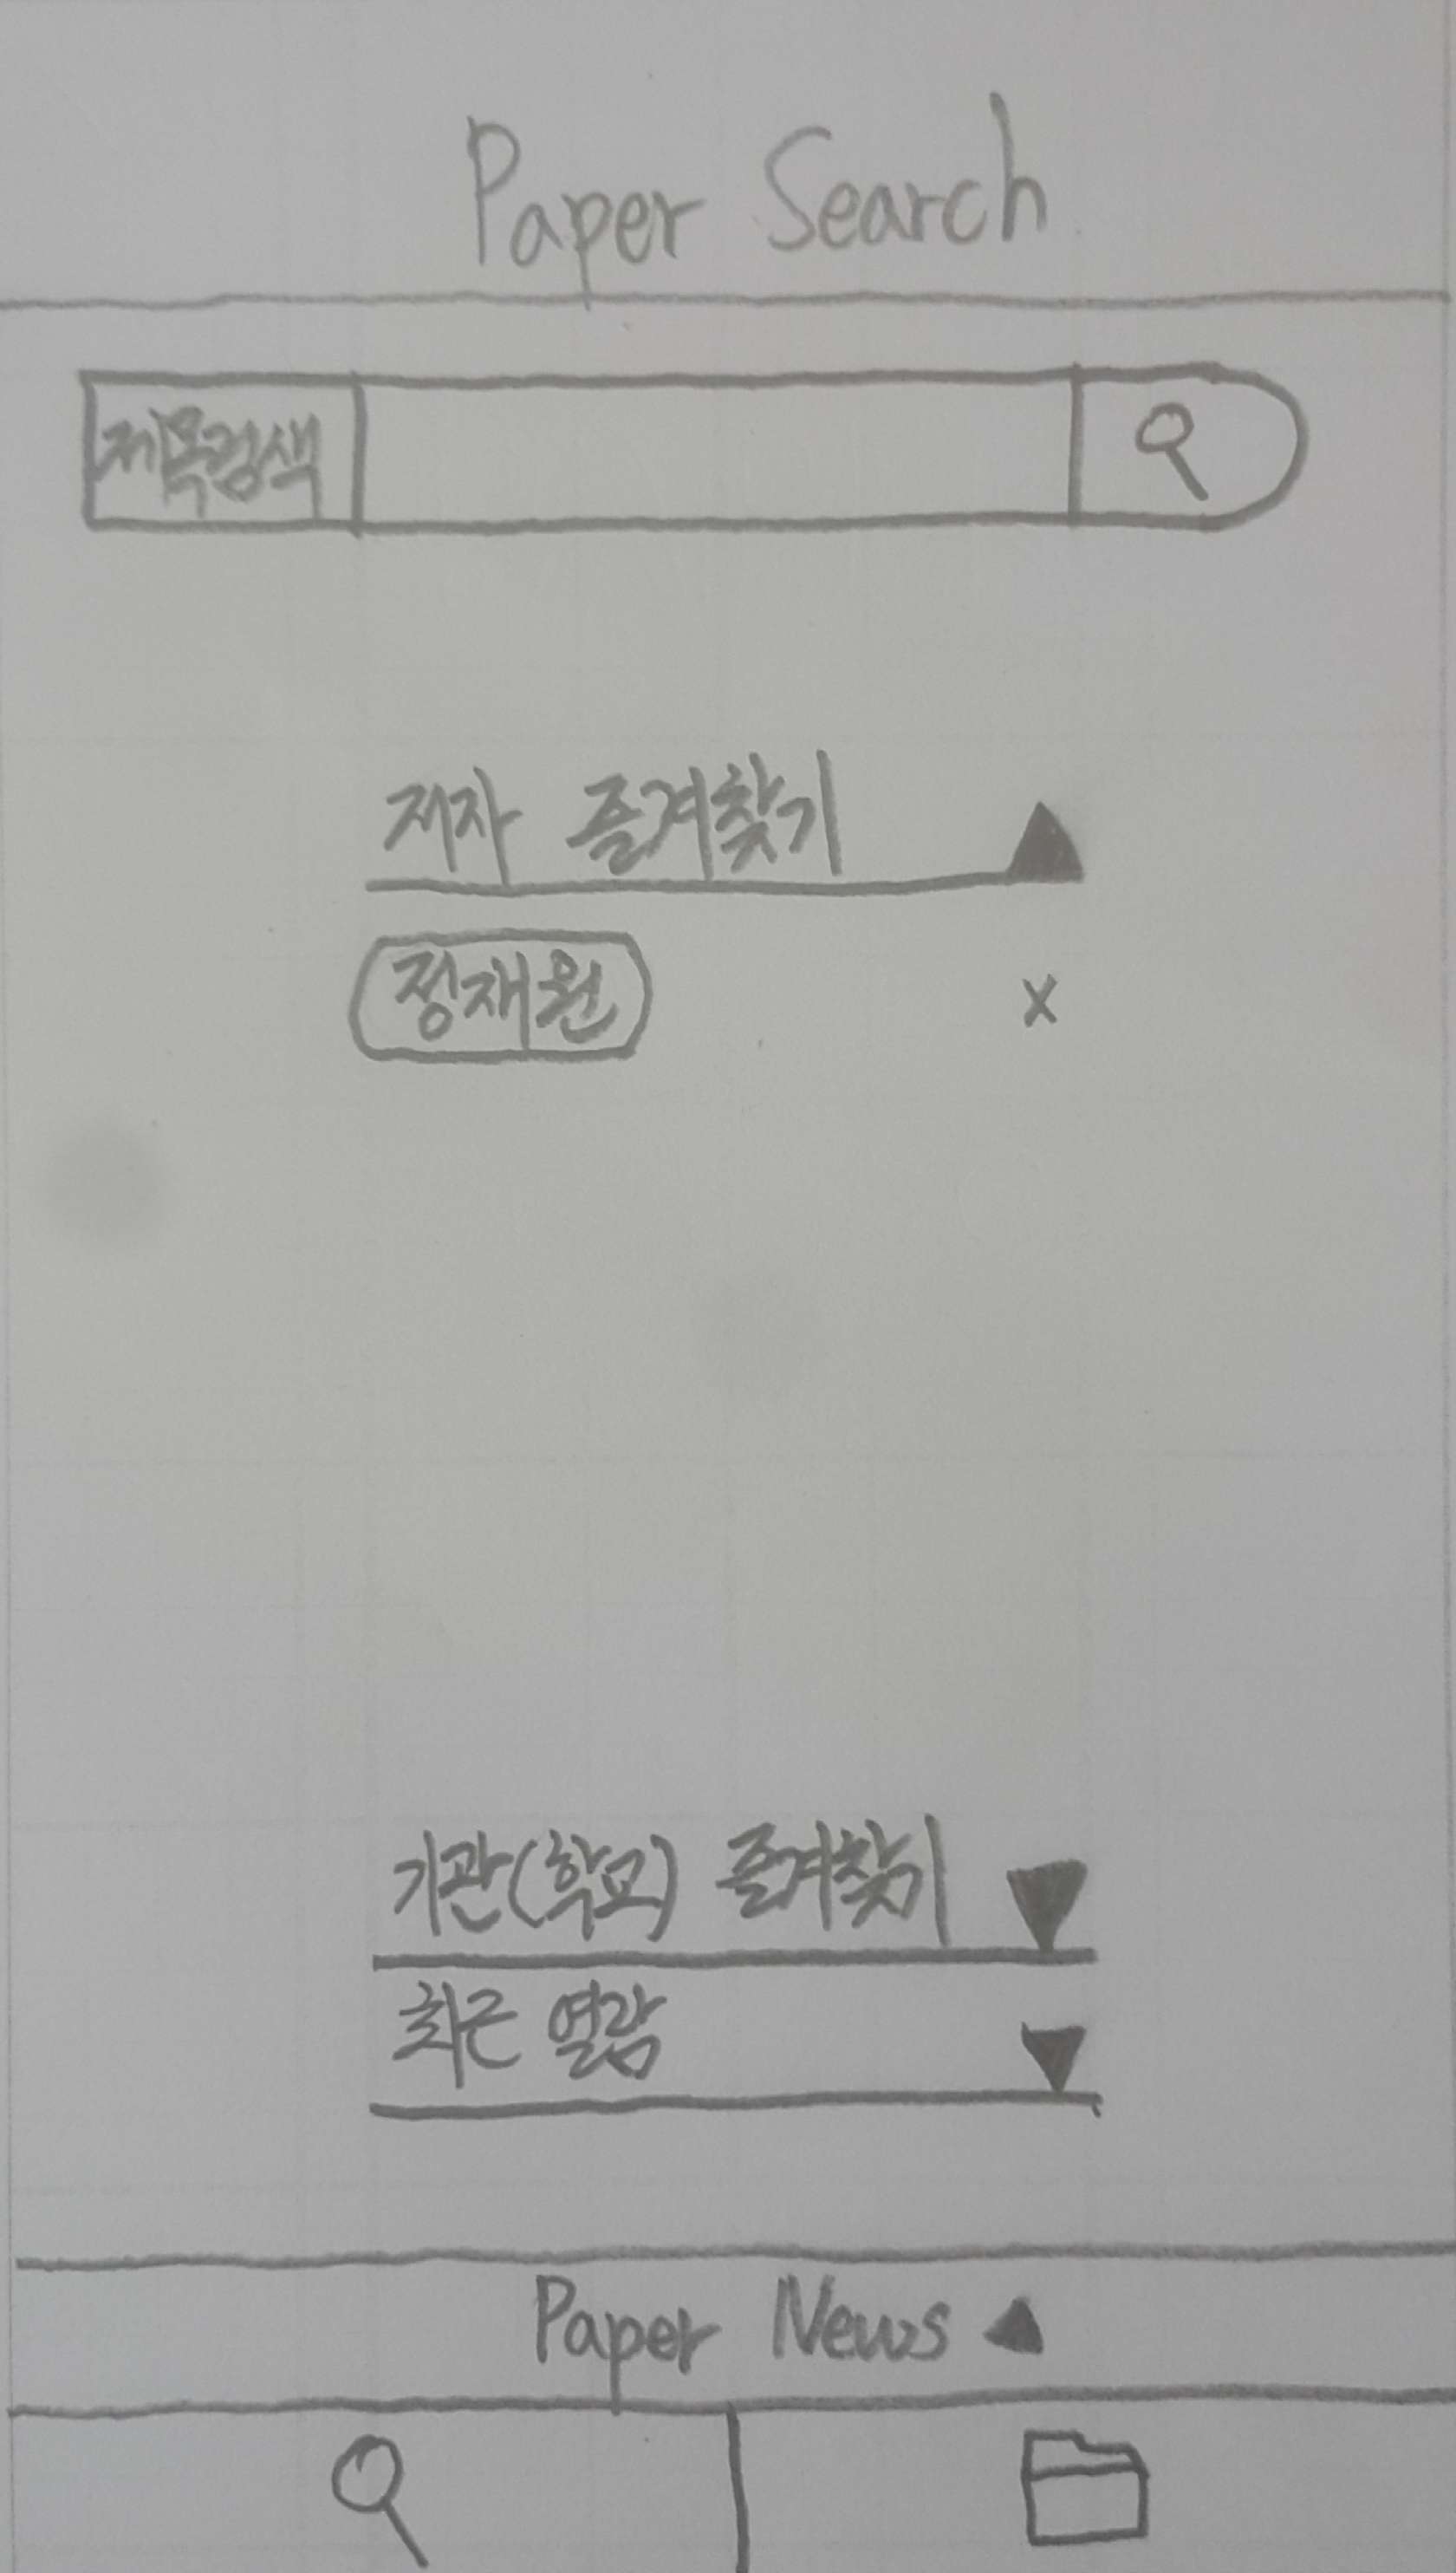 Paper Search
제목검색
저자 즐겨찾기
정재원 x
기관(학교) 즐겨찾기
최근 열람
Paper News